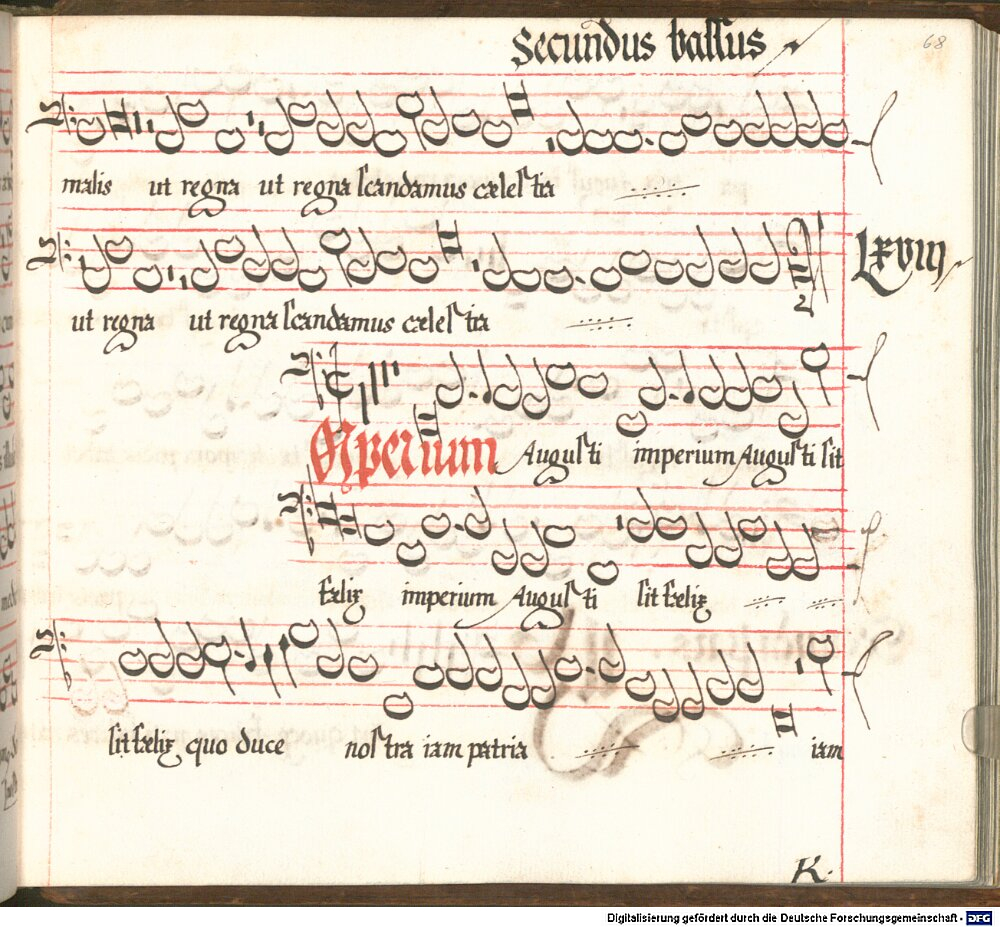 Secundus bassus
68
malis ut regna ut regna scandamus cælestia
ut regna ut regna scandamus cælestia
LXVIII
Imperium Augusti imperium Augusti sit
fælix imperium Augusti sit fælix
sit fælix quo duce nostra iam patria iam
K.
Digitalisierung gefördert durch die Deutsche Forschungsgemeinschaft - DFG